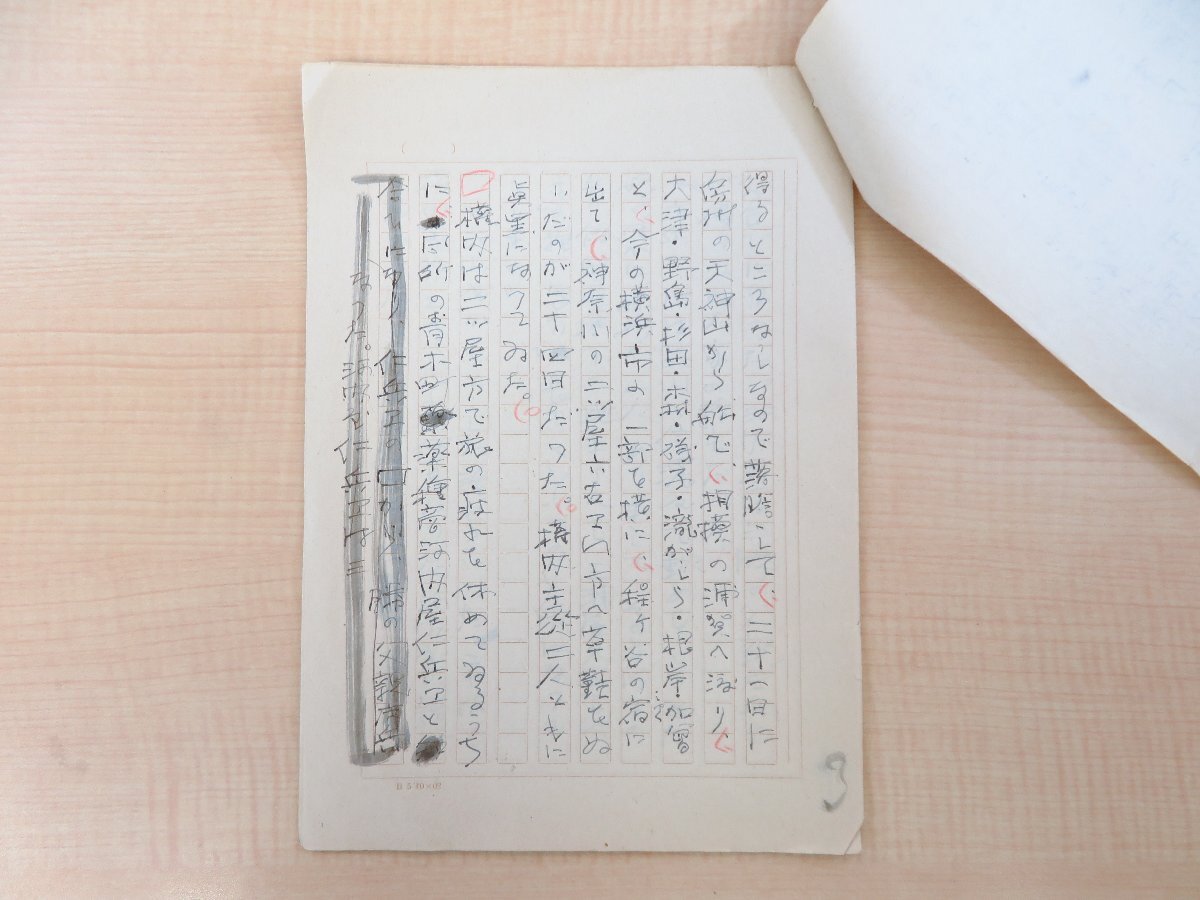 得るところなしなので落胆して、二十一日に
房州の天神山から船で、相模の浦賀へ渡り、
大津・野島・杉田・森・磯子・瀧がしら・根岸・加曾
と、今の横浜市の一部を横に、程ヶ谷の宿に
出て、神奈川の二ツ屋六右卫门方へ草鞋をぬ
いだのが二十四日だつた。横内主従二人ともに
眞黒になつてゐた。
横内は二ツ屋方で旅の疲れを休めてゐるうち
に、同所の青木町薬種商河内屋仁兵卫と
なつた。河内屋仁兵卫は
だてになり、仁兵卫の口から、勝の父親
3
B5 20×10